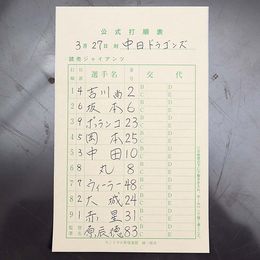 公式打順表
3月27日 対 中日ドラゴンズ
読売ジャイアンツ
打順 守備 選手名 番号 交代
1 4 吉川尚 2 B C D E
2 6 坂本 6 B C D E
3 9 ポランコ 23 B C D E
4 5 岡本 25 B C D E
5 3 中田 10 B C D E
6 8 丸 8 B C D E
7 7 ウィーラー 48 B C D E
8 2 大城 24 B C D E
9 1 赤星 31 B C D E
監督 原辰徳 83